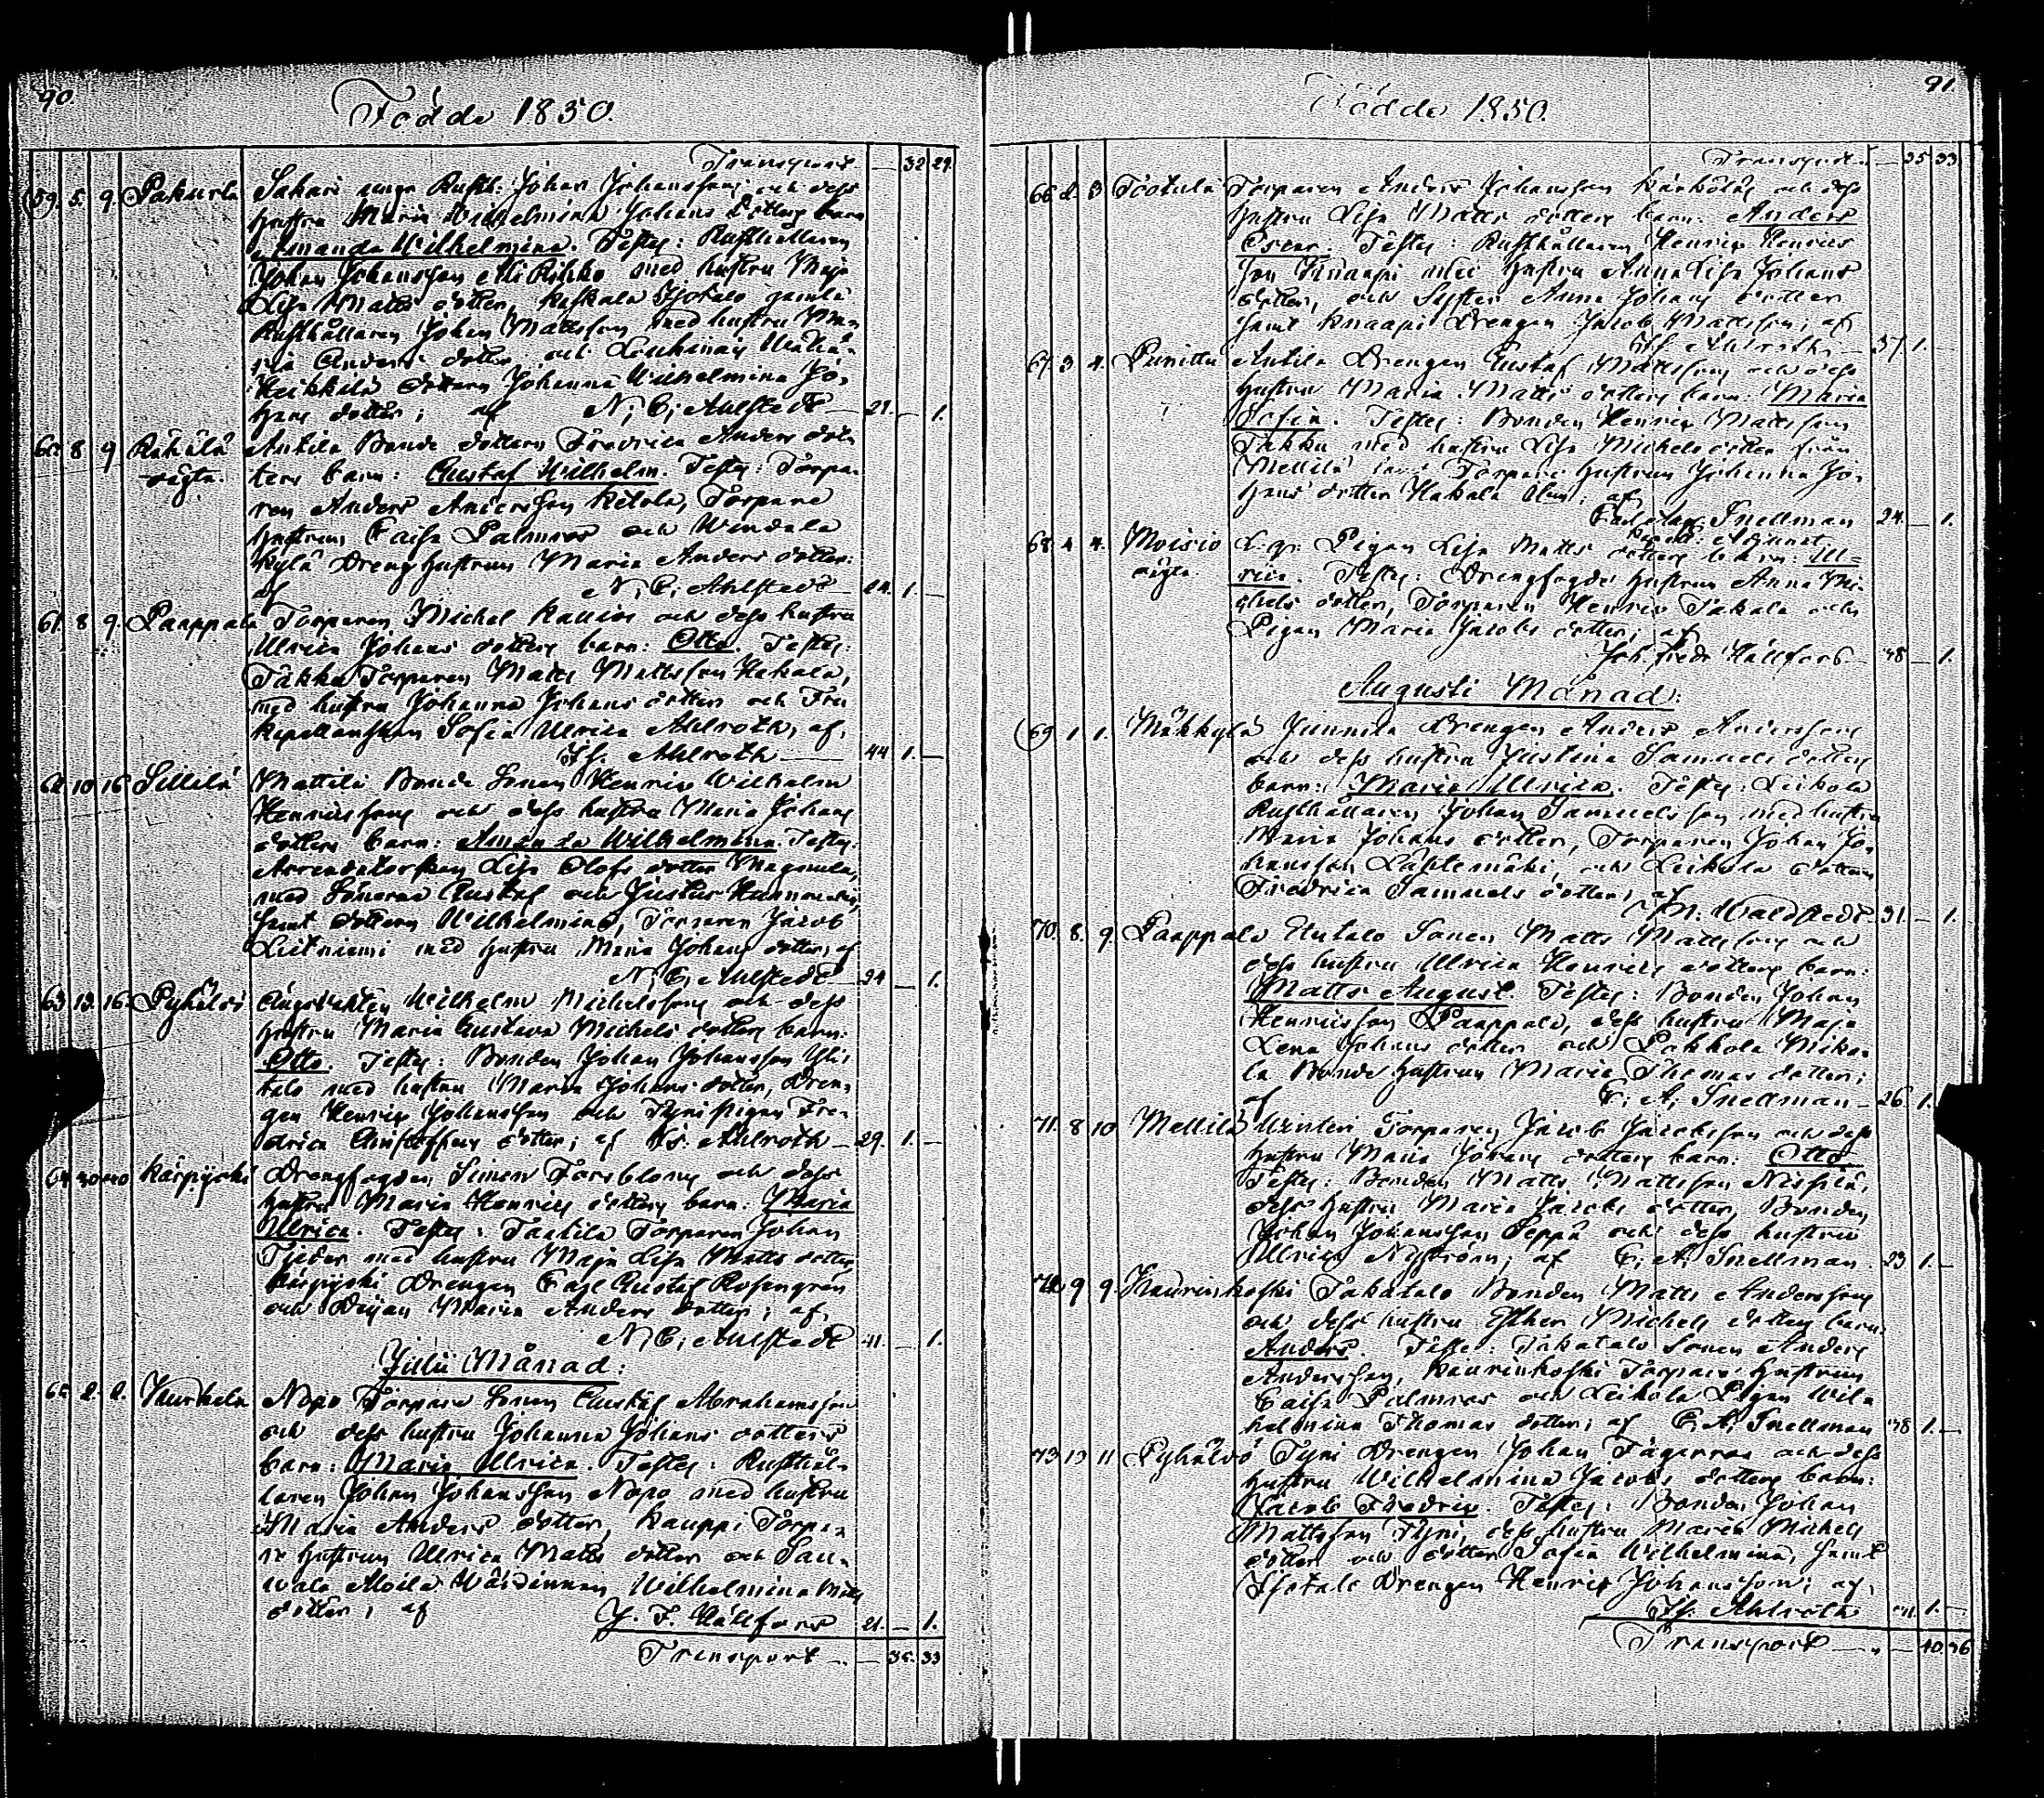 90.
Födde 1850.
Transport — 32 29.
59. 5. 9. Pakurla Sakari unge Rusth: Johan Johansson och dess
hustru Maria Wilhelmina Johans dotters barn
Amanda Wilhelmina. Testes: Rusthållaren
Johan Johansson Ali Rihko med hustru Maja
Lisa Matts dotter, Isotalo gamla
Rusthållaren Johan Mattsson med hustru Ma-
ria Anders dotter och
Heikkilä dottern Johanna Wilhelmina Jo-
hans dotter; af N, C, Ahlstedt — 21. — 1.
60. 8 9 Rähälä Antila Bonde dottern Fredrica Anders dot-
oägta. ters barn: Gustaf Wilhelm. Testes: Torpa-
ren Anders Andersson Ketola, Torpare
hustrun Caisa Palmros och
kylä Dreng hustrun Maria Anders dotter:
af N, C, Ahlstedt — 24. 1. —
61. 8 9. Paappala Torparen Michel och dess hustru
Ulrica Johans dotters barn: Otto. Testes:
Takku Torparen Matts Mattsson Hakala,
med hustru Johanna Johans dotter och Fru
Kapellanskan Sofia Ulrica Ahlroth, af,
Is. Ahlroth — 44 1. —
62 10 16 Sillilä Mattila Bonde Sonen Henric Wilhelm
Henricsson och dess hustru Maria Johans
dotters barn: Amanda Wilhelmina. Testes:
Arrendatorskan Lisa Olofs dotter Magnula,
med Sönerna Gustaf och Justus
samt dottern Wilhelmina, Torparen Jacob
Leitniemi med hustru Maria Johans dotter, af
N, C, Ahlstedt — 24 — 1.
63. 13. 16. Pyhälvi Wilhelm Michelsson och dess
hustru Maria Gustava Michels dotters barn:
Otto. Testes: Bonden Johan Johansson Yli-
talo med hustru Maria Johans dotter, Dren-
gen Henric Johansson och Tyni pigan Fre-
drica Christoffers dotter; af Is. Ahlroth — 29. 1. —
64 30 Karpijoki Drengfogden Simon Forsblom och dess
hustru Maria Henrics dotters barn: Maria
Ulrica. Testes: Taatila Torparen Johan
Tjeder med hustru Maja Lisa Matts dotter,
Karpijoki Drengen Carl Gustaf Rosengren
och Pigan Maria Anders dotter; af,
N, C, Ahlstedt 41. — 1.
Julii Månad:
65 2. 2. Kurkela Nopo Torpare Sonen Gustaf Abrahamsson
och dess hustru Johanna Johans dotters
barn: Maria Ulrica. Testes: Rusthål-
laren Johan Johansson Nopo med hustru
Maria Anders dotter, Kauppi Torpa-
re hustrun Ulrica Matts dotter och Sau-
vala Alvila Wärdinnan, Wilhelmina Matts
dotter, af J. F. Hällfors 21. — 1.
Transport — 35. 33
91.
Födde 1850.
Transport — 35 33
66 2. 3 Tootula Torparen Anders Johansson och dess
hustru Lisa Matts dotters barn: Anders
Oscar. Testes: Rusthållaren Henric Henrics
son Knaapi med hustru Anna Lisa Johans
dotter, och Syster Anna Johans dotter
samt Knaapi Drengen Jacob Mattsson; af
Is. Ahlroth, — 37 1. —
67. 3 4. Punittu Antila Drengen Gustaf Mattsson och dess
hustru Maria Matts dotters barn: Maria
Sofia. Testes: Bonden Henric Mattsson
Takku med hustru Lisa Michels dotter från
Mellilä samt Torpare hustrun Johanna Jo-
hans dotter Hakala; af
Snellman 24. — 1.
Adjunct.
68. 4 4. Moisio Pigan Lisa Matts dotters barn: Ul-
oägta. rica. Testes: Drengfogde hustrun Anna Mi-
chels dotter, Torparen Henric Takala och
Pigan Maria Jacobs dotter; af
Joh. Fredr Hällfors — 48 — 1.
Augusti Månad:
69 1 1. Mäkkylä Junnila Drengen Anders Andersson
och dess hustru Justina Samuels dotters
barn: Maria Ulrica. Testes: Leikola
Rusthållaren Johan Samuelsson med hustru
Maria Johans dotter, Torparen Johan Jo-
hansson Lähtemäki, och Leikola dottern
Fredrica Samuels dotter; af
M. Waldstedt 31. — 1.
70. 8. 9. Paappala Utalo Sonen Matts Mattsson och
dess hustru Ulrica Henrics dotters barn:
Matts August. Testes: Bonden Johan
Henricsson Paappala, dess hustru Maja
Lena Johans dotter och Pekkola Mika-
la Bonde hustrun Maria Thomas dotter;
af C. A. Snellman — 26. 1.
71. 8 10 Mellilä Torparen Jacob Jacobsson och dess
hustru Maria Johans dotters barn: Otto
Testes: Bonden Matts Mattsson Nissilä,
dess hustru Maria Jacobs dotter, Bonden
Johan Johansson Seppä och dess hustru
Ulrica Nyström; af C. A. Snellman. 23 1. —
72. 9 9. Kaurinkoski Takatalo Bonden Matts Andersson
och dess hustru Esther Michels dotters barn:
Anders. Testes: Takatalo Sonen Anders
Andersson, Kaurinkoski Torpare hustrun
Caisa Palmros och Leikola Pigan Wil-
helmina Thomas dotter; af C. A. Snellman 38 1. —
73 10 11 Pyhälvö Tyni Drengen Johan Fagerroos och dess
hustru Wilhelmina Jacobs dotters barn:
Jacob Fredric. Testes: Bonden Johan
Mattsson Tyni, dess hustru Maria Michels
dotter och dotter Sofia Wilhelmina, samt
Isotalo Drengen Henric Johansson; af,
Is. Ahlroth 1. —
Transport — 40. 36